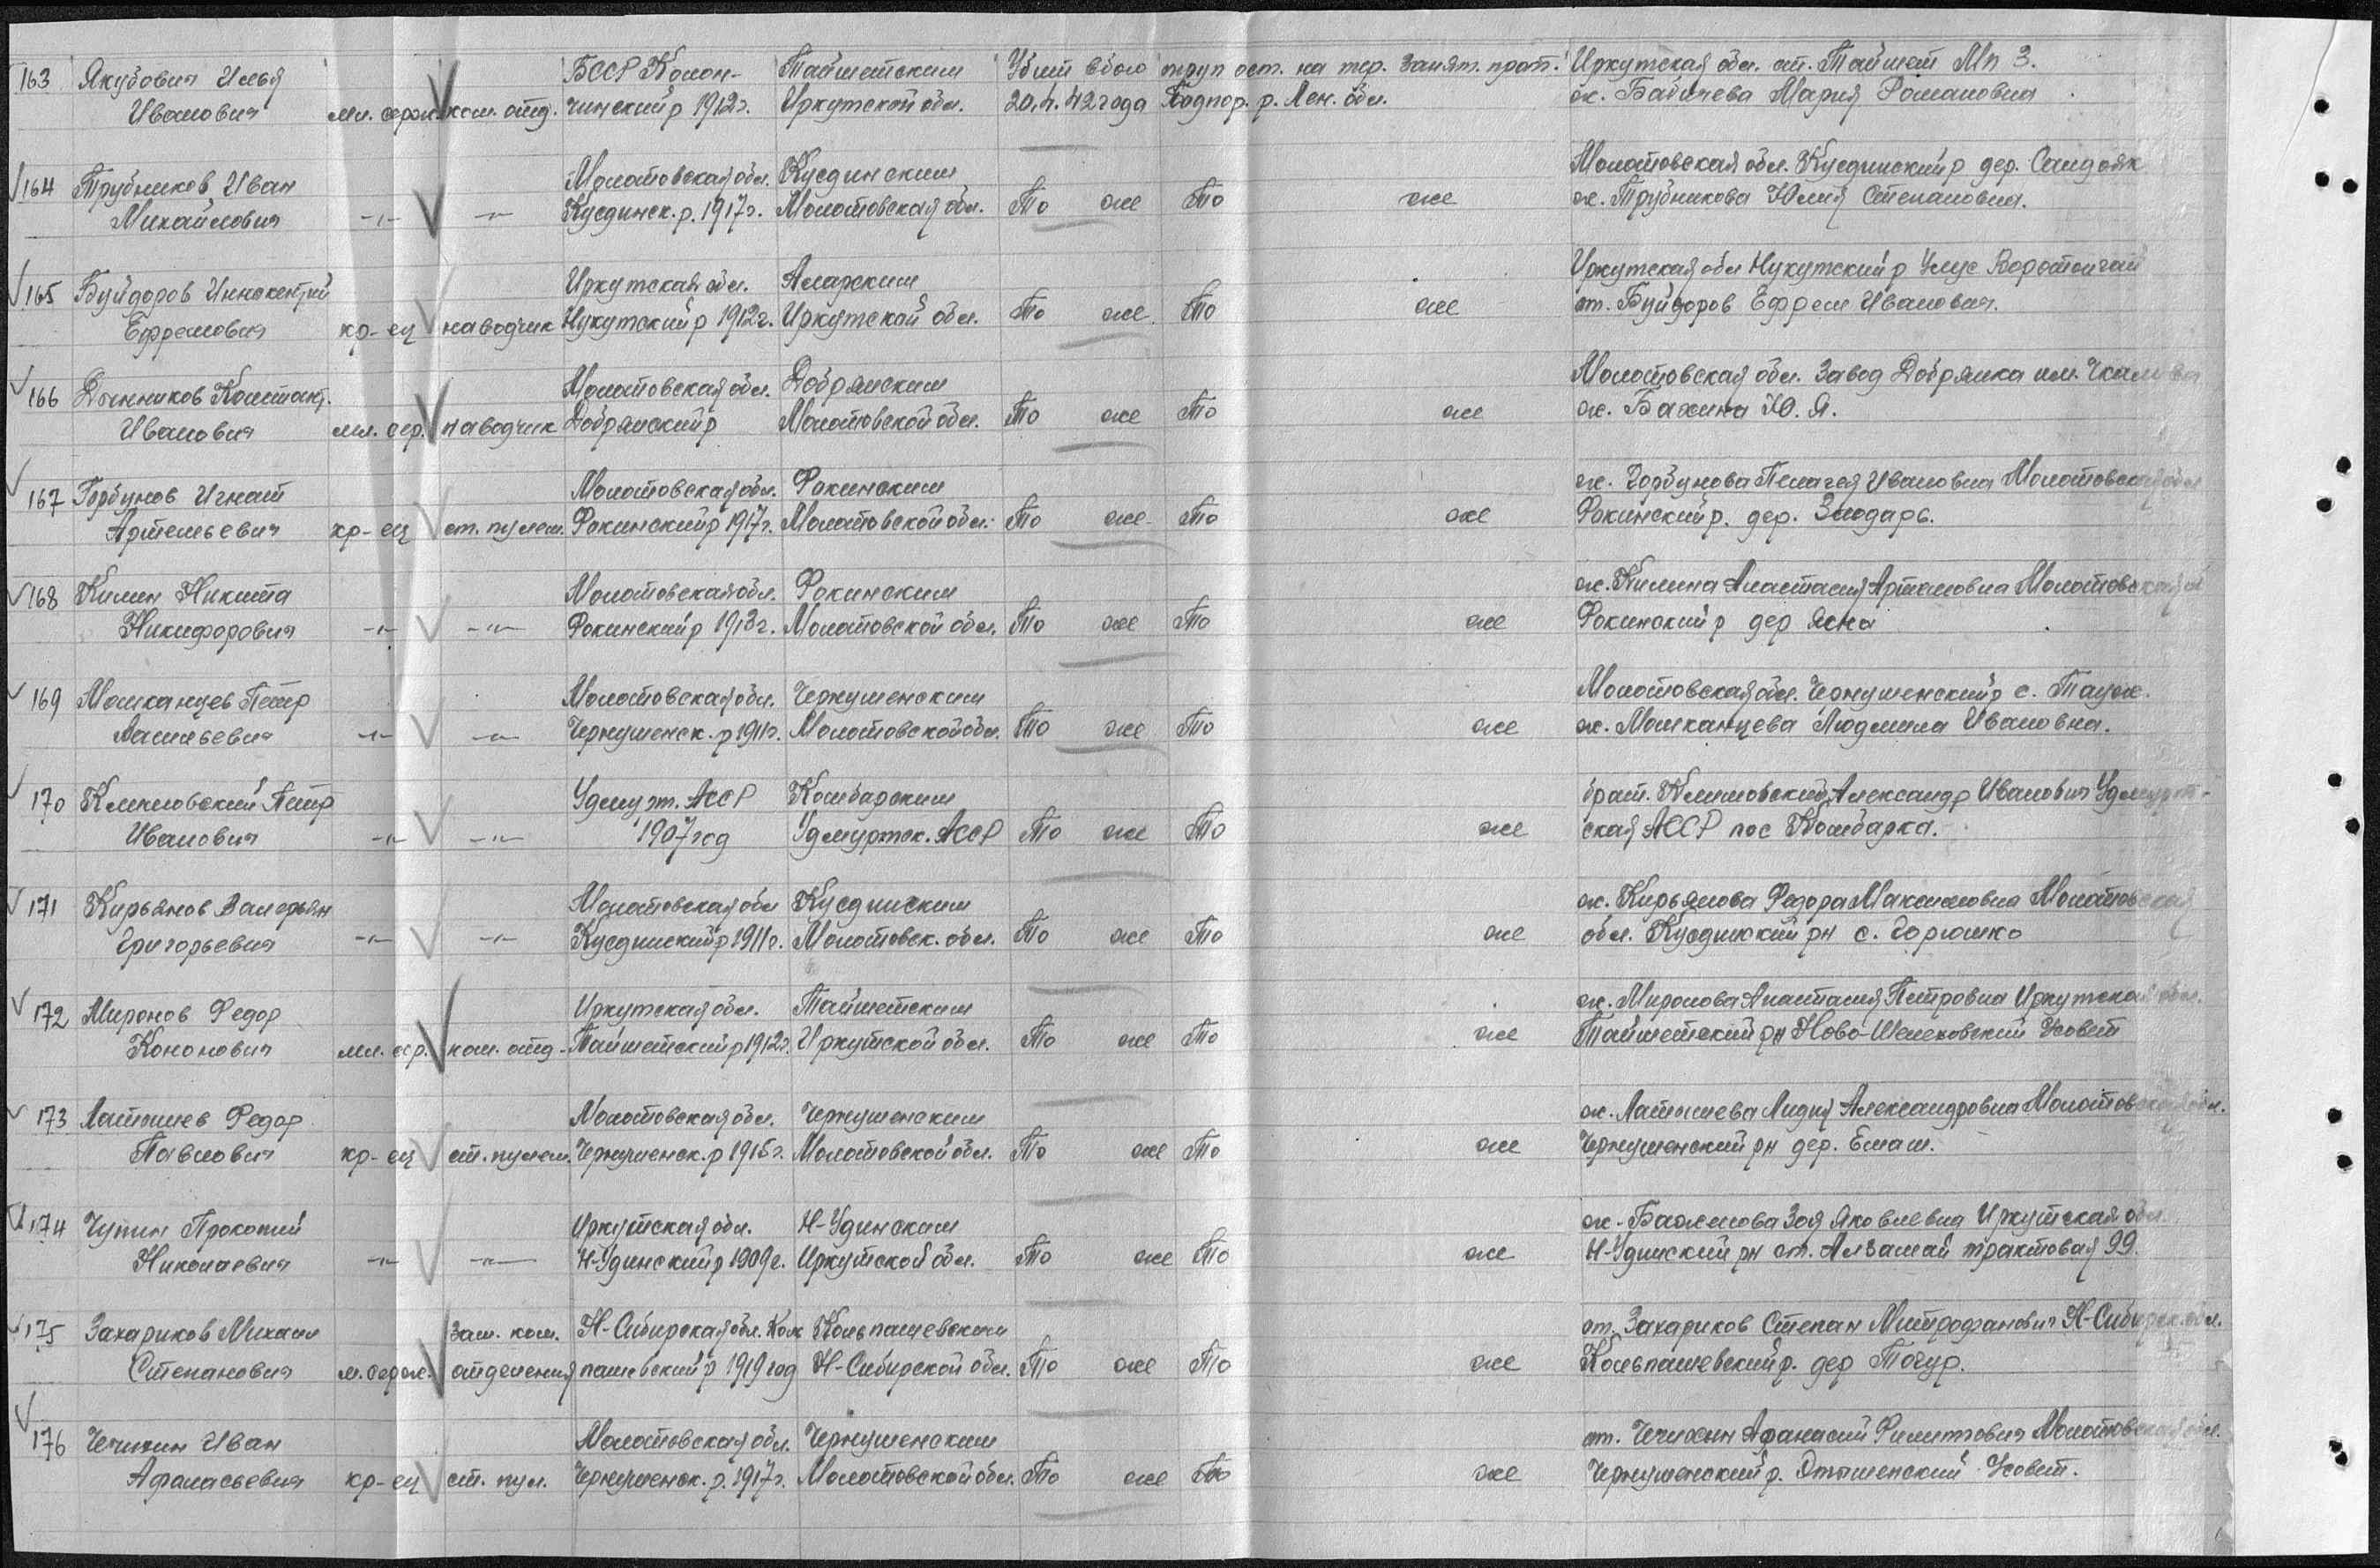 163 Якубович Илья БССР Холоп- Тайшетским Убит в бою труп ост. на тер. занят. прот. Иркутская обл. ст. Тайшет Мп 3.
Иванович мл. серж. ком. отд. 1912г. Иркутской обл. 20.4.42 года Подпор. р. Лен. обл. ж. Бабичева Мария Романовна
Молотовская обл. Куединским Молотовская обл. Куединский р дер.
164 Трубников Иван Куединск. р. 1917г. Молотовская обл. То же То же ж. Трубникова Юлия Степановна.
Михайлович -"- -"-
Иркутская обл. Аларским Иркутская обл Нукутский р Улус
165 Буйдоров Иннокентий Нукутский р 1912г. Иркутской обл. То же То же от. Буйдоров Ефрем Иванович.
Ефремович кр-ец наводчик
Молотовская обл. Добрянским Молотовская обл. Завод Добрянка им.
166 Дынников Констант. Добрянский р Молотовской обл. То же То же ж. Бахина Ю. Я.
Иванович мл. сер. наводчик
167 Горбунов Игнат Молотовская обл. Фокинским ж. Горбунова Пелагея Ивановна Молотовская обл
Артемьевич кр-ец ст. пулем. Фокинский р 1917г. Молотовской обл. То же То же Фокинский р. дер.
168 Килин Никита Молотовская обл. Фокинским ж. Килина Анастасия Артамовна Молотовская
Никифорович -"- -"- Фокинский р 1913г. Молотовской обл. То же То же Фокинский р дер Ясна
169 Мошканцев Петр Молотовская обл. Чернушенским Молотовская обл. Чернушенский р с. Тауш.
-"- -"- Чернушенск. р 1911г. Молотовской обл. То же То же ж. Мошканцева Людмила Ивановна.
170 Климовский Петр Удмурт. АССР Камбарским брат. Климовский Александр Иванович Удмурт-
Иванович -"- -"- 1907 год Удмуртск. АССР То же То же ская АССР пос Камбарка.
171 Кирьянов Валерьян Молотовская обл Куединским ж. Кирьянова Федора Максимовна Молотовская
Григорьевич -"- -"- Куединский р 1911г. Молотовск. обл. То же То же обл. Куединский рн с.
172 Миронов Федор Иркутская обл. Тайшетским ж. Миронова Анастасия Петровна Иркутская обл.
Кононович мл. сер. ком. отд. Тайшетский р 1912г. Иркутской обл. То же То же Тайшетский рн Ново-Шелеховский Усовет
173 Латышев Федор Молотовская обл. Чернушенским ж. Латышева Лидия Александровна Молотовская обл.
Павлович кр-ец ст. пулем. Чернушенск. р 1915г. Молотовской обл. То же То же Чернушенский рн дер. Емаш.
174 Чупин Прокопий Иркутская обл. Н-Удинским ж. Баженова Зоя Яковлевна Иркутская обл
Николаевич -"- -"- Н-Удинский р 1909г. Иркутской обл. То же То же Н-Удинский рн ст. Алзамай трактовая 99.
175 Захариков Михаил Зам. ком. Н-Сибирская обл. Кол Кольпашевским от. Захариков Степан Митрофанович Н-Сибирск. обл.
Степанович м. серж. отделения пашевский р 1919 год Н-Сибирской обл. То же То же Кольпашевский р. дер Тогур.
176 Чечихин Иван Молотовская обл. Чернушенским от. Чечихин Афанасий Филиппович Молотовская обл.
Афанасьевич кр-ец ст. пул. Чернушенск. р. 1917г. Молотовской обл. То же То же Чернушенский р. Усовет.